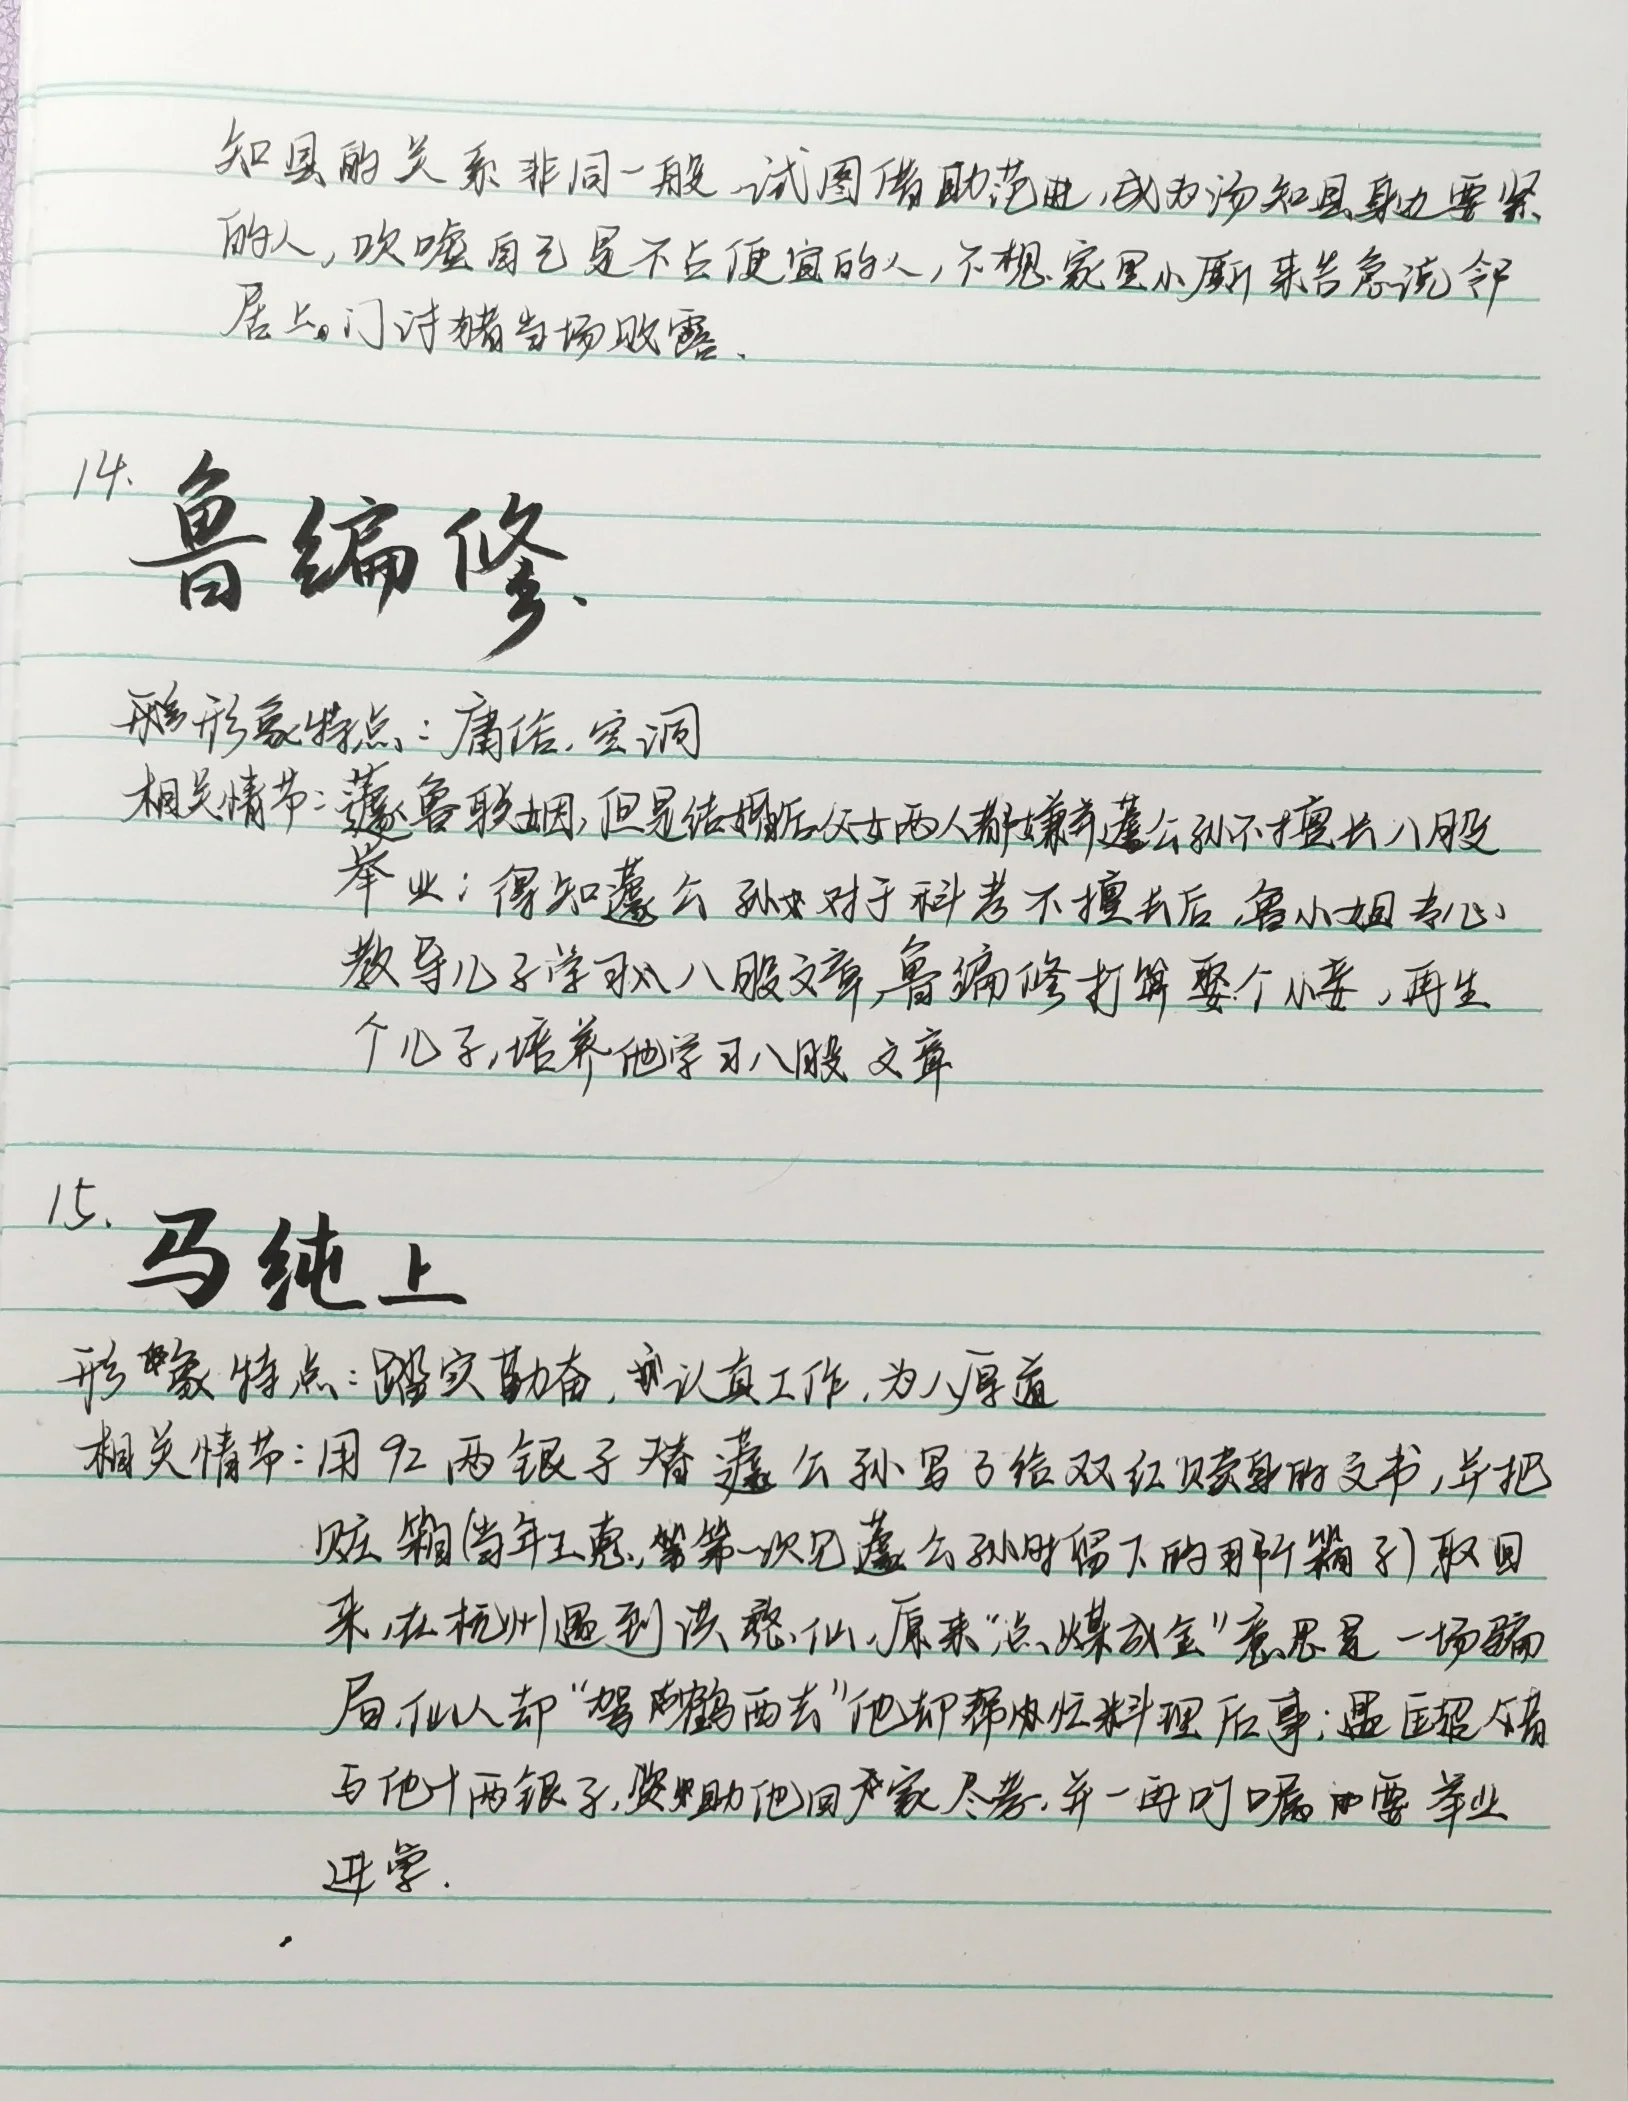 知县的关系非同一般,试图借助范进,成为汤知县身边要紧
的人,吹嘘自己是不占便宜的人,不想家里小厮来告急说邻
居上门讨猪当场败露.
14.
鲁编修.
形象特点:庸俗.空洞
相关情节:蘧鲁联姻,但是结婚后父女两人都嫌弃蘧公孙不擅长八股
举业;得知蘧公孙对于科考不擅长后,鲁小姐专心
教导儿子学习八股文章,鲁编修打算娶个小妾,再生
个儿子,培养他学习八股文章
15.
马纯上
形象特点:踏实勤奋,认真工作,为人厚道
相关情节:用92两银子替蘧公孙写了给双红赎身的文书,并把
赃箱(当年王惠,第一次见蘧公孙时留下的那个箱子)取回
来,在杭州遇到洪憨仙,原来“点煤成金”意思是一场骗
局,仙人却“驾鹤西去”他却帮忙料理后事;遇匡超人借
与他十两银子,资助他回家尽孝,并一再叮嘱要举业
进学.